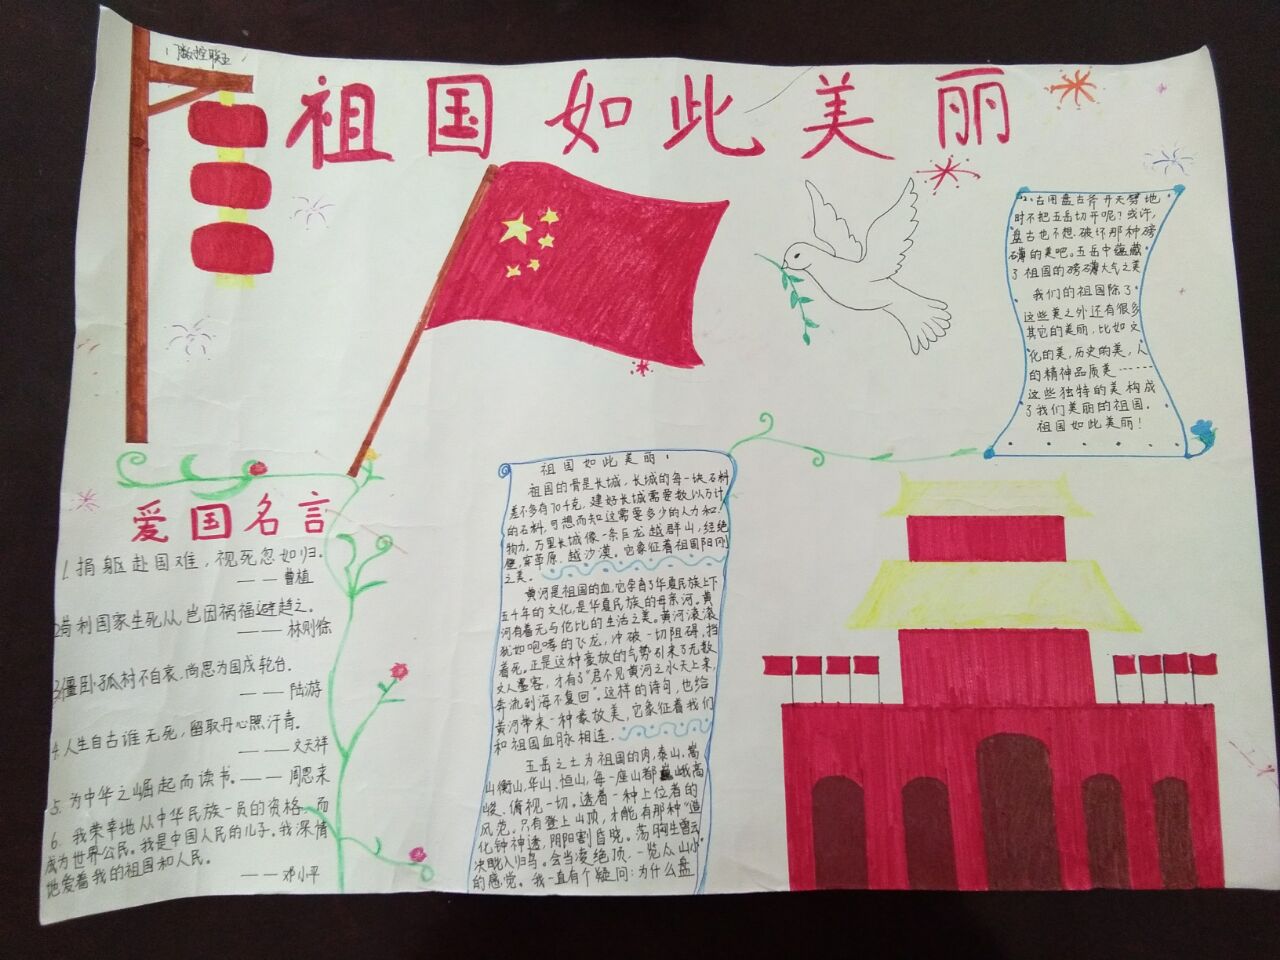 数控联五
祖国如此美丽
爱国名言
1.捐躯赴国难，视死忽如归。
——曹植
2苟利国家生死从岂因祸福避趋之。
———林则徐
3僵卧孤村不自哀，尚思为国戍轮台。
——陆游
4.人生自古谁无死，留取丹心照汗青。
———文天祥
5.为中华之崛起而读书。——周恩来
6.我荣幸地从中华民族一员的资格，而
成为世界公民。我是中国人民的儿子。我深情
地爱着我的祖国和人民。
——邓小平
祖国如此美丽！
祖国的骨是长城，长城的每一块石料
差不多有70千克，建好长城需要数以万计
的石料，可想而知这需要多少的人力和
物力。万里长城像一条巨龙越群山，经绝
壁，穿草原，越沙漠。它象征着祖国阳刚
之美。
黄河是祖国的血，它孕育了华夏民族上下
五千年的文化，是华夏民族的母亲河。黄
河有着无与伦比的生活之美。黄河滚滚
犹如咆哮的飞龙，冲破一切阻碍，挡
着死。正是这种豪放的气势引来了无数
文人墨客，才有了“君不见黄河之水天上来，
奔流到海不复回”。这样的诗句，也给
黄河带来一种豪放美，它象征着我们
和祖国血脉相连。
五岳之土为祖国的肉，泰山、嵩
山衡山、华山、恒山，每一座山都巍峨高
峻。俯视一切，透着一种上位者的
风范。只有登上山顶，才能有那种“造
化钟神透，阴阳割昏晓。荡胸生曾云，
决眦入归鸟。会当凌绝顶，一览众山小”
的感觉。我一直有个疑问：为什么盘
古用盘古斧开天劈地
时不把五岳切开呢？或许，
盘古也不想破坏那种磅
礴的美吧。五岳中蕴藏
了祖国的磅礴大气之美
我们的祖国除了
这些美之外还有很多
其它的美丽，比如文
化的美，历史的美，人
的精神品质美------
这些独特的美构成
了我们美丽的祖国。
祖国如此美丽！